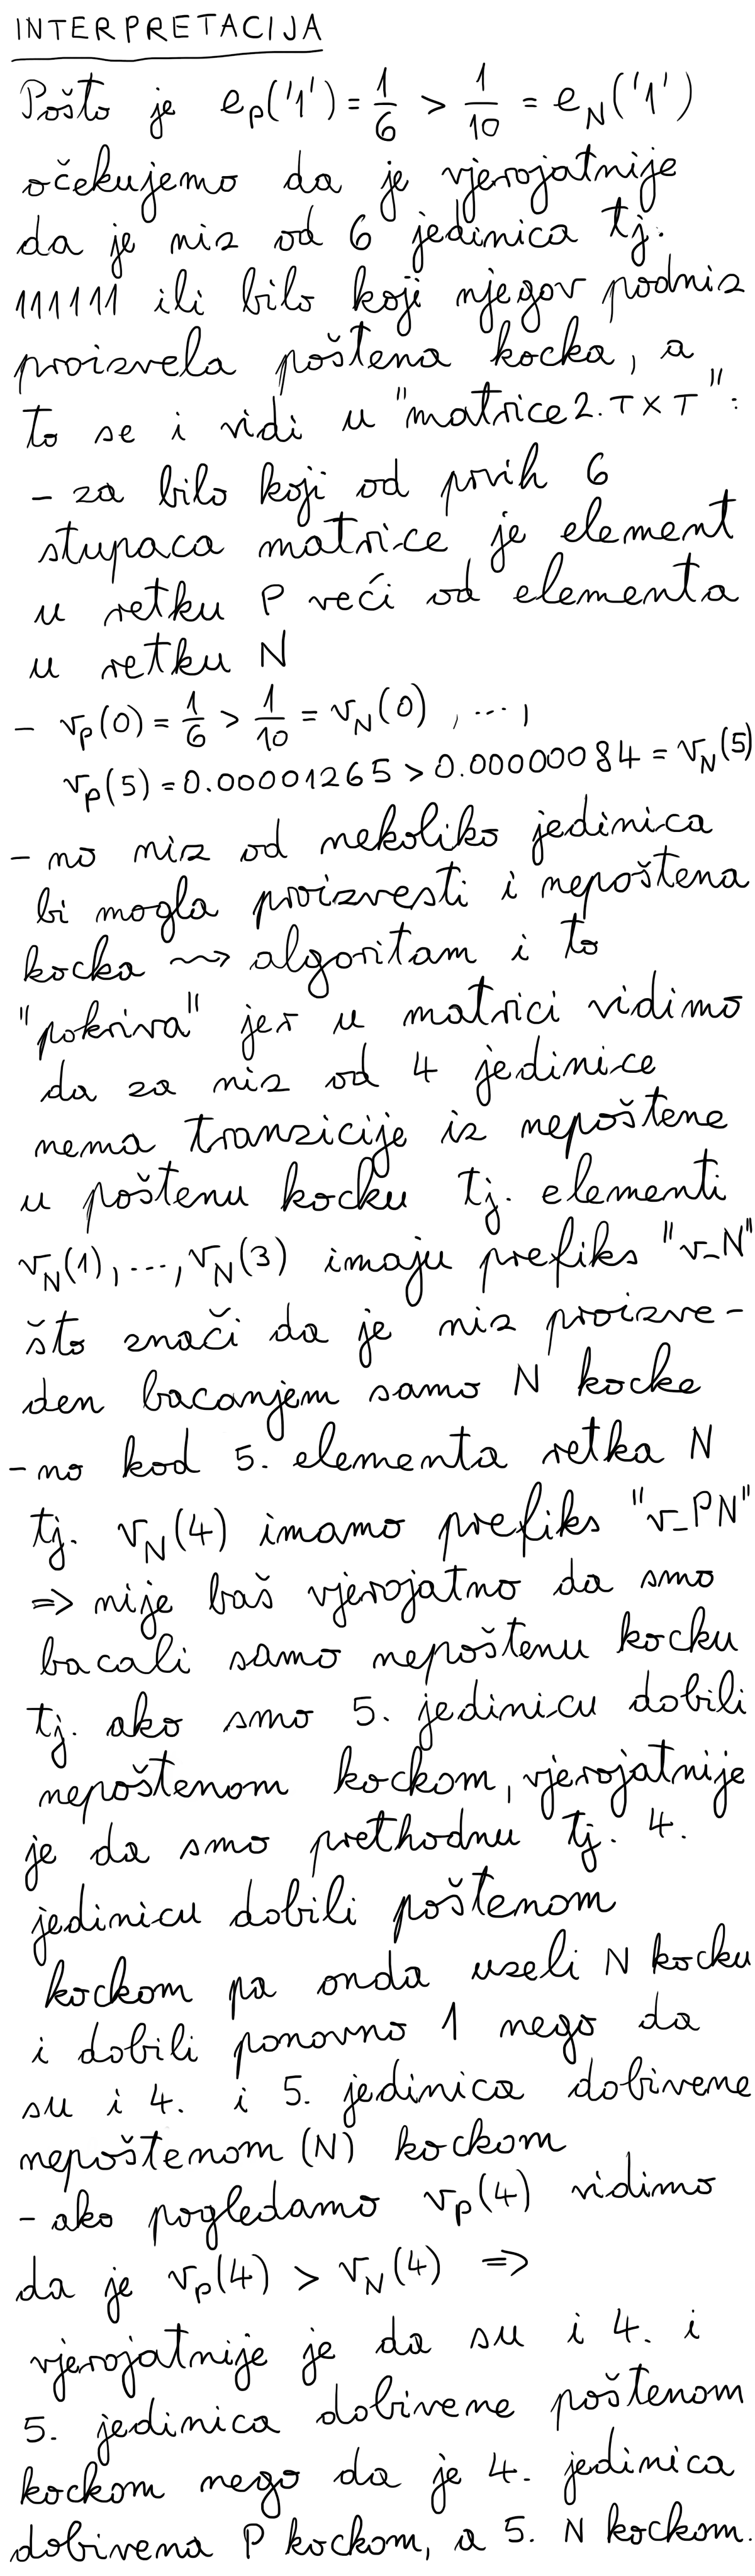 INTERPRETACIJA
Pošto je e_P('1') = 1/6 > 1/10 = e_N('1')
očekujemo da je vjerojatnije
da je niz od 6 jedinica tj.
111111 ili bilo koji njegov podniz
proizvela poštena kocka, a
to se i vidi u "matrice2.TXT":
- za bilo koji od prvih 6
stupaca matrice je element
u retku P veći od elementa
u retku N
- v_P(0) = 1/6 > 1/10 = v_N(0), ...,
v_P(5) = 0.00001265 > 0.00000084 = v_N(5)
- no niz od nekoliko jedinica
bi mogla proizvesti i nepoštena
kocka ⇝ algoritam i to
"pokriva" jer u matrici vidimo
da za niz od 4 jedinice
nema tranzicije iz nepoštene
u poštenu kocku tj. elementi
v_N(1), ..., v_N(3) imaju prefiks "v_N"
što znači da je niz proizve-
den bacanjem samo N kocke
- no kod 5. elementa retka N
tj. v_N(4) imamo prefiks "v_PN"
⇒ nije baš vjerojatno da smo
bacali samo nepoštenu kocku
tj. ako smo 5. jedinicu dobili
nepoštenom kockom, vjerojatnije
je da smo prethodnu tj. 4.
jedinicu dobili poštenom
kockom pa onda uzeli N kocku
i dobili ponovno 1 nego da
su i 4. i 5. jedinica dobivene
nepoštenom (N) kockom
- ako pogledamo v_P(4) vidimo
da je v_P(4) > v_N(4) ⇒
vjerojatnije je da su i 4. i
5. jedinica dobivene poštenom
kockom nego da je 4. jedinica
dobivena P kockom, a 5. N kockom.